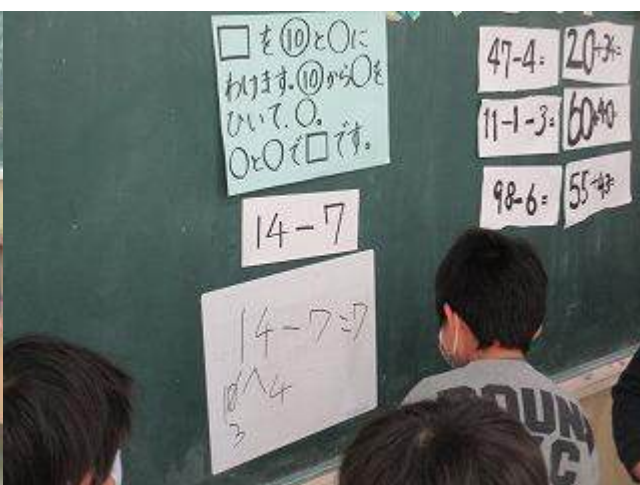 □を⑩と○に
わけます。⑩から○を
ひいて、○。
○と○で□です。
14-7
14-7=7
10 4
3
47-4=
11-1-3=
98-6=